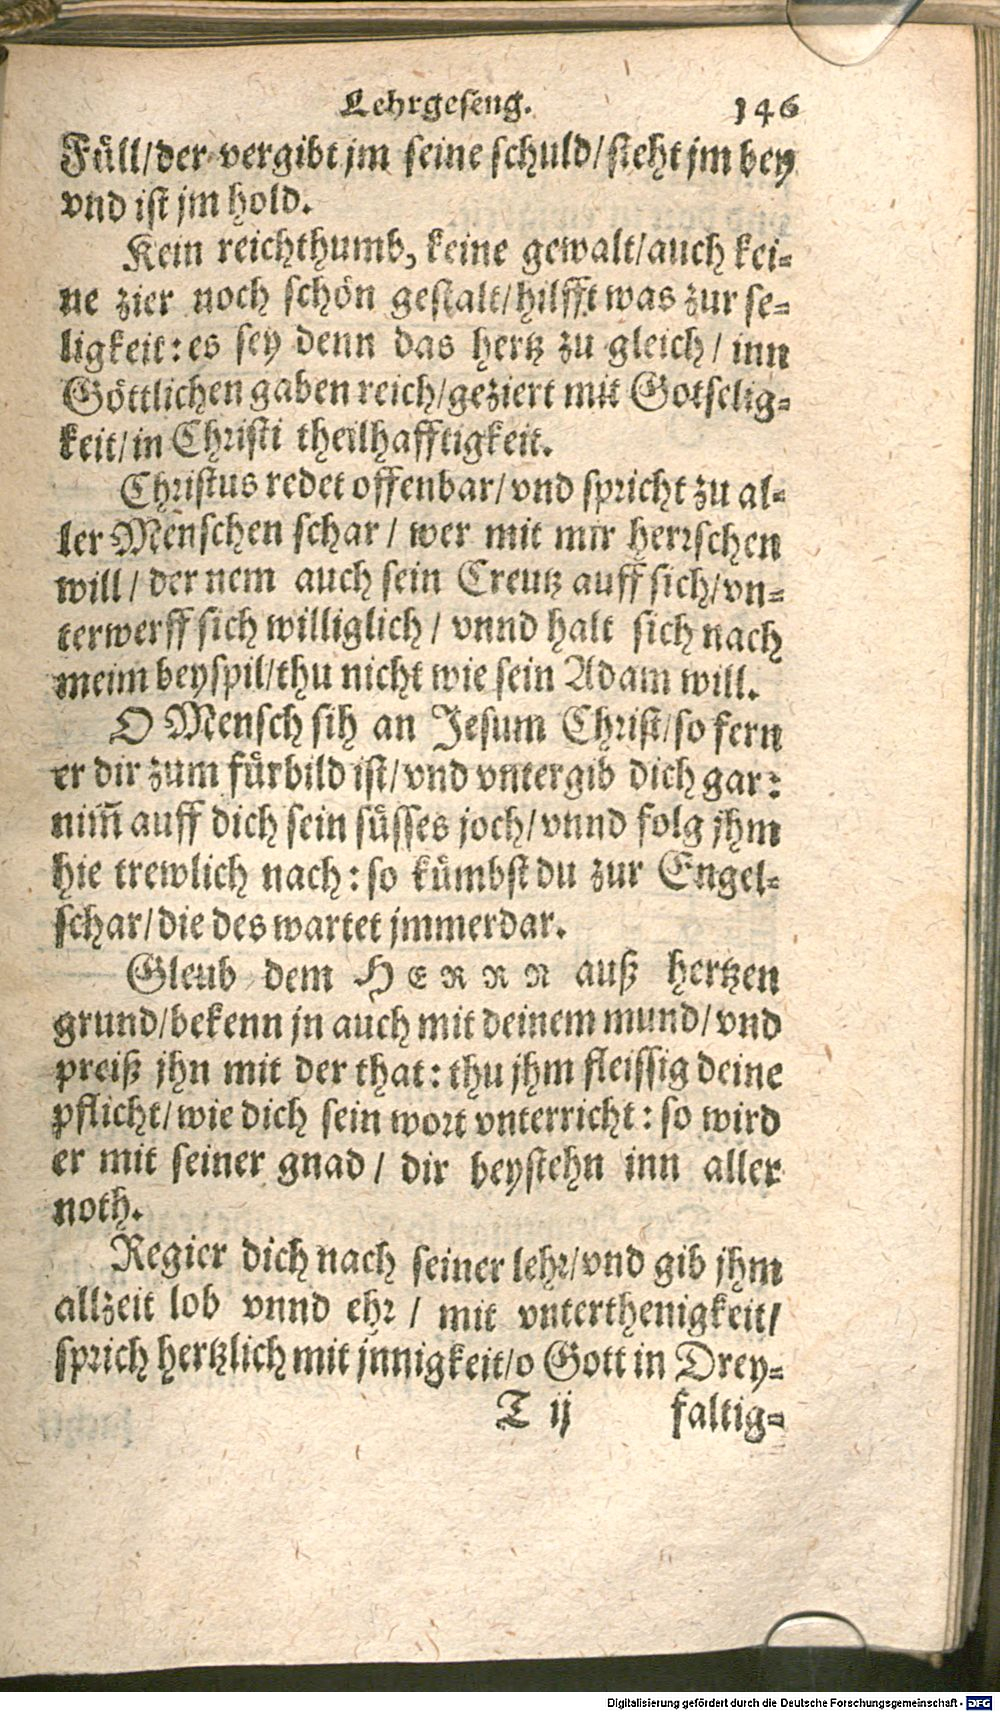 Lehrgeseng. 146
Füll/der vergibt jm seine schuld/steht jm bey
vnd ist jm hold.
Kein reichthumb, keine gewalt/auch kei-
ne zier noch schön gestalt/hilfft was zur se-
ligkeit: es sey denn das hertz zu gleich/ inn
Göttlichen gaben reich/geziert mit Gotselig-
keit/in Christi theilhafftigkeit.
Christus redet offenbar/vnd spricht zu al-
ler Menschen schar/ wer mit mir herrschen
will/ der nem auch sein Creutz auff sich/vn-
terwerff sich williglich/ vnnd halt sich nach
meim beyspil/thu nicht wie sein Adam will.
O Mensch sih an Jesum Christ/so fern
er dir zum fürbild ist/vnd vntergib dich gar:
nim̃ auff dich sein süsses joch/vnnd folg jhm
hie trewlich nach: so kümbst du zur Engel-
schar/die des wartet jmmerdar.
Gleub dem HERRN auß hertzen
grund/bekenn jn auch mit deinem mund/vnd
preiß jhn mit der that: thu jhm fleissig deine
pflicht/wie dich sein wort vnterricht: so wird
er mit seiner gnad/ dir beystehn inn aller
noth.
Regier dich nach seiner lehr/vnd gib jhm
allzeit lob vnnd ehr/ mit vnterthenigkeit/
sprich hertzlich mit jnnigkeit/o Gott in Drey-
T ij faltig-
Digitalisierung gefördert durch die Deutsche Forschungsgemeinschaft - DFG